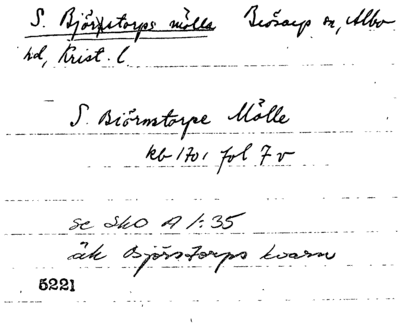 S. Björnstorps mölla Brösarp sn, Albo
hd, Krist. l
S. Biörnstorpe Mölle
kb 1701 fol 7 v
se SkO A 1:35
äk Björstorps kvarn
5221